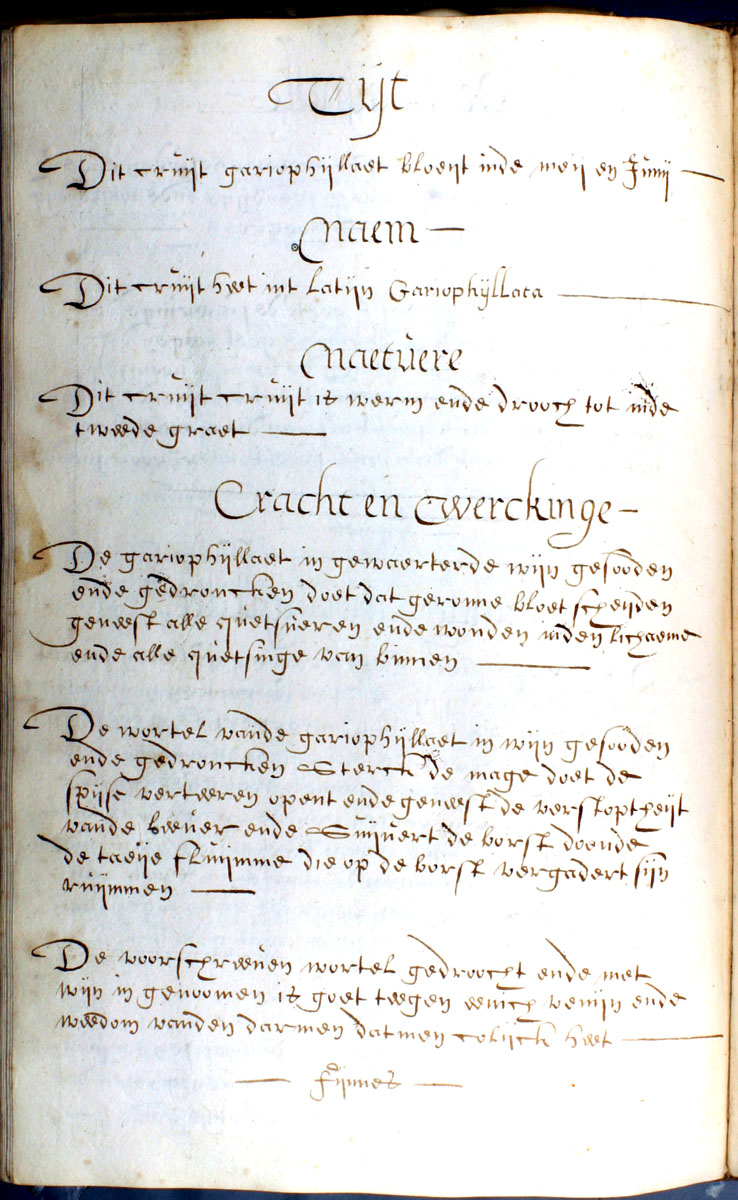 Tijt
Dit cruijt gariophijllaet bloeijt inde meij en Junij
Naem
Dit cruijt heet int Latijn Gariophijllata
Naetuere
Dit cruijt cruijt is werm ende drooch tot inde
tweede graet
Cracht en Werckinge
De gariophijllaet in gewaeterde wijn gesooden
ende gedroncken doet dat geronne bloet scheijden
geneest alle quetsueren ende wonden inden lichaeme
ende alle quetsinge van binnen
De wortel vande gariophijllaet in wijn gesooden
ende gedroncken Sterckt de mage doet de
spijse verteeren opent ende geneest de verstoptheijt
vande leever ende Suijvert de borst doende
de taeije fluijmme die op de borst vergadert sijn
ruijmmen
De voorschreeven wortel gedroocht ende met
wijn in genoomen is goet teegen eenich venijn ende
weedom vanden darmen datmen colijck heet
fijnnes